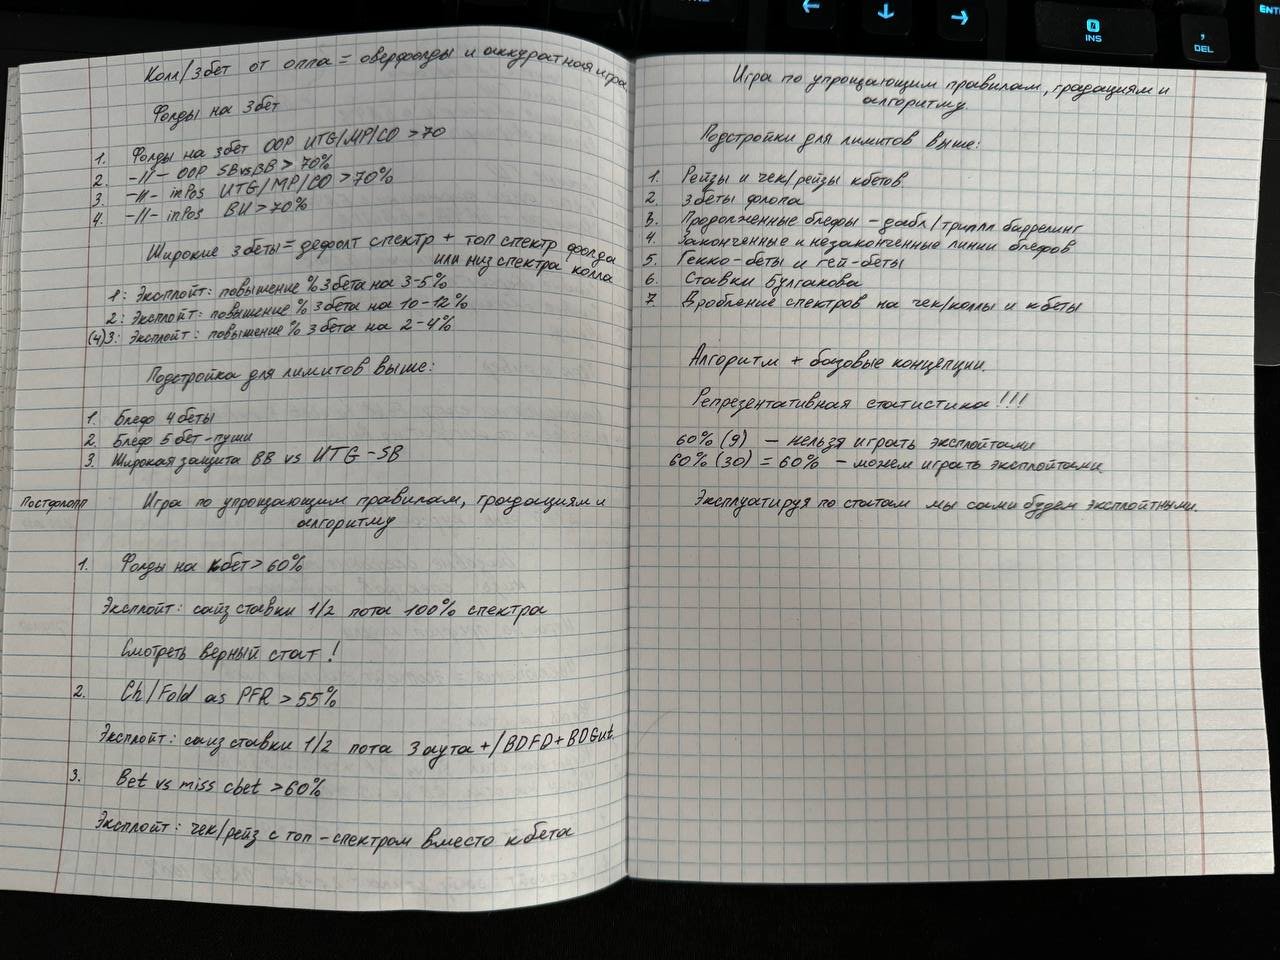 Колл/3бет от оппа = оверфолды и аккуратная игра
Фолды на 3бет
1. Фолды на 3бет OOP UTG/MP/CO > 70
2. -//- OOP SB vs BB > 70%
3. -//- inPos UTG/MP/CO > 70%
4. -//- inPos BU > 70%
Широкие 3беты = дефолт спектр + топ спектр фолда
или низ спектра колла
1: Эксплойт: повышение % 3бета на 3-5%
2: Эксплойт: повышение % 3бета на 10-12%
(4)3: Эксплойт: повышение % 3бета на 2-4%
Подстройка для лимитов выше:
1. Блеф 4беты
2. Блеф 5бет-пуши
3. Широкая защита BB vs UTG-SB
Постфлопп
Игра по упрощающим правилам, градациям и
алгоритму
1. Фолды на кбет > 60%
Эксплойт: сайз ставки 1/2 пота 100% спектра
Смотреть верный стат!
2. Ch/Fold as PFR > 55%
Эксплойт: сайз ставки 1/2 пота 3 аута +/BDFD+BDGut.
3. Bet vs miss cbet > 60%
Эксплойт: чек/рейз с топ-спектром вместо кбета
Игра по упрощающим правилам, градациям и
алгоритму.
Подстройки для лимитов выше:
1. Рейзы и чек/рейзы кбетов
2. 3беты флопа
3. Продолженные блефы - дабл/трипл баррелинг
4. Законченные и незаконченные линии блефов
5. Гекко-беты и гей-беты
6. Ставки Булгакова
7. Дробление спектров на чек/коллы и кбеты
Алгоритм + базовые концепции.
Репрезентативная статистика!!!
60% (9) - нельзя играть эксплойтами
60% (30) = 60% - можем играть эксплойтами
Эксплуатируя по статам мы сами будем эксплойтными.
0
INS
,
DEL